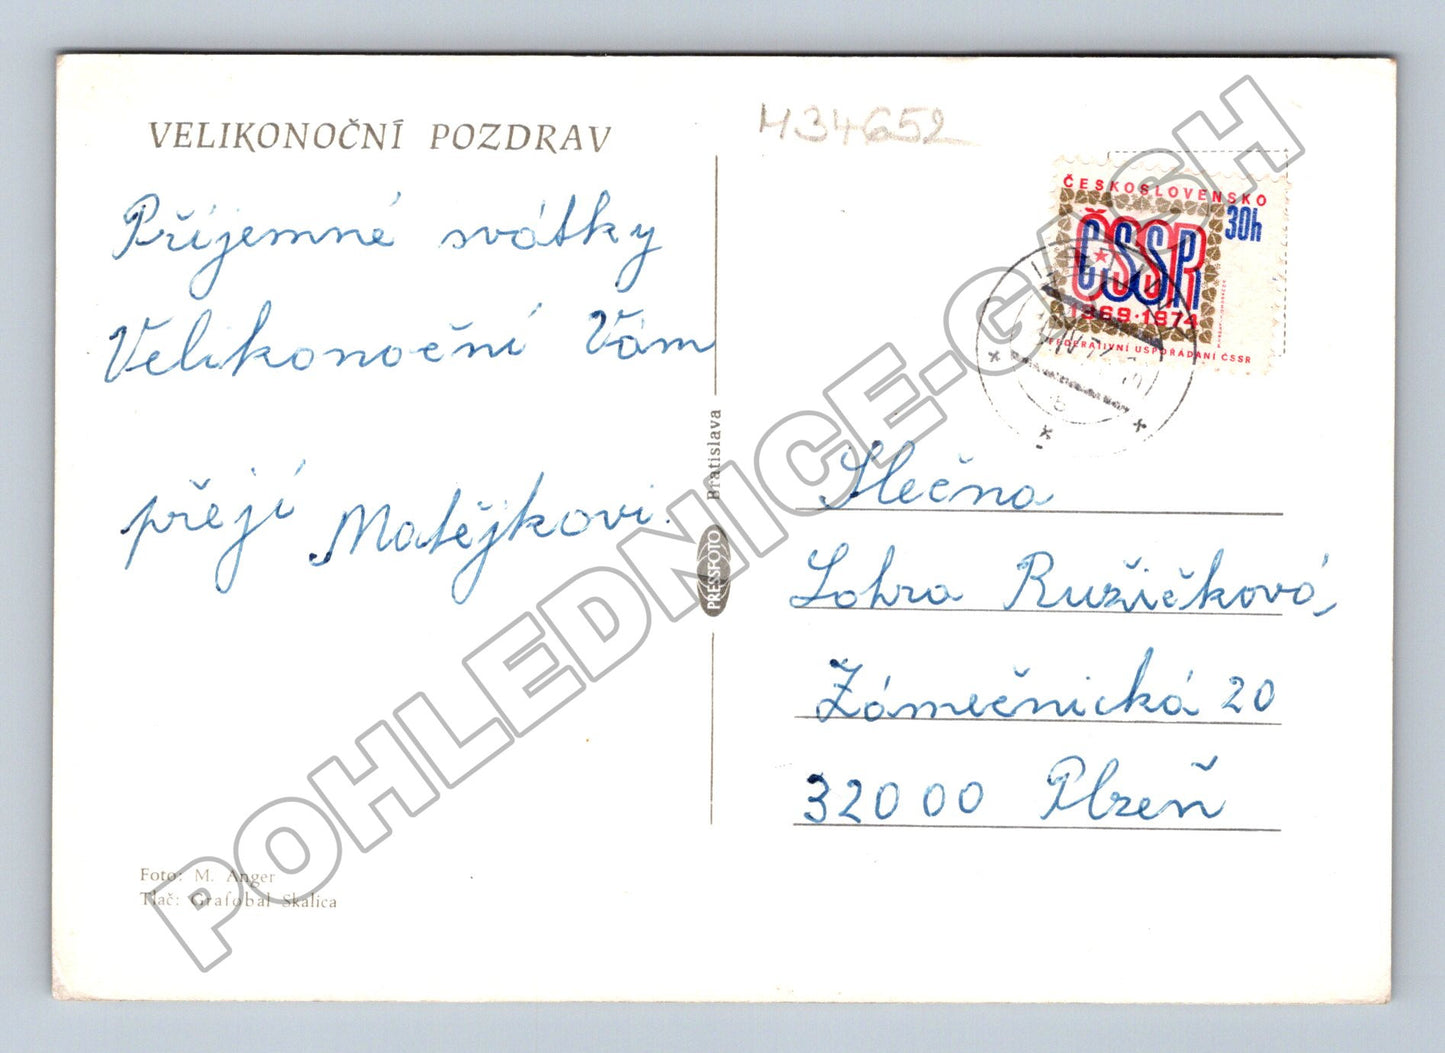 VELIKONOČNÍ POZDRAV
H34652
ČESKOSLOVENSKO
30h
ČSSR
1969·1974
FEDERATIVNÍ USPOŘÁDÁNÍ ČSSR
Příjemné svátky
Velikonoční Vám
přejí Matějkovi.
Bratislava
PRESSFOTO
Slečna
Lohra Ružičková,
Zámečnická 20
32000 Plzeň
Foto: M. Anger
Tlač: Grafobal Skalica
POHLEDNICE-GASH